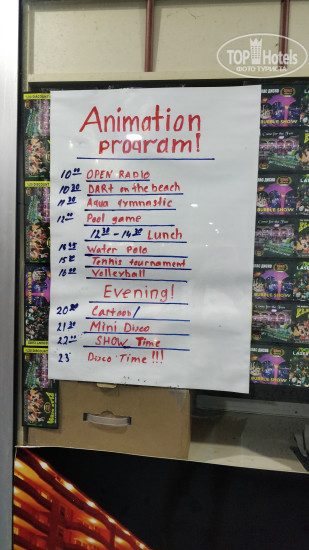 TOPHotels
ФОТО ТУРИСТА
Animation
program!
10:00 OPEN RADIO
10:30 DART on the beach
11:30 Aqua gymnastic
12:00 Pool game
12:30 - 14:30 Lunch
Water Polo
Tennis tournament
16:00 Volleyball
Evening!
Cartoon/
21:30 Mini Disco
SHOW Time
23 Disco Time !!!
BUBBLE SHOW
BUBBLE SHOW